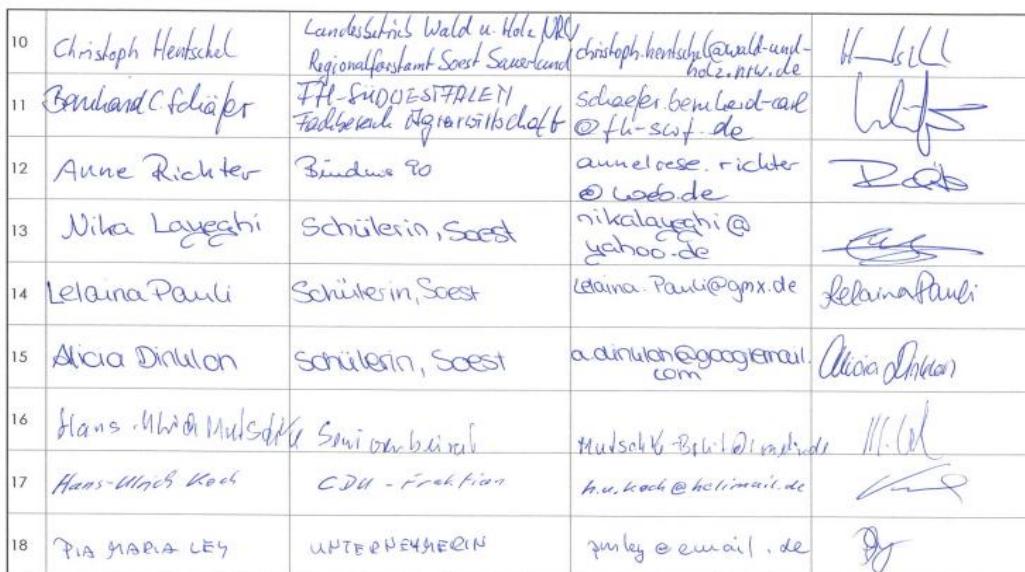 10 Christoph Hentschel Landesbetrieb Wald u. Holz NRW
Regionalforstamt Soest Sauerland christoph.hentschel@wald-und-
holz.nrw.de
11 Bernhard C. Schäfer FH-SÜDWESTFALEN
Fachbereich Agrarwirtschaft schaefer.bernhard-carl
@fh-swf.de
12 Anne Richter Bündnis 90 annelrese.richter
@web.de
13 Nika Layeghi Schülerin, Soest nikalayeghi@
yahoo.de
14 Lelaina Pauli Schülerin, Soest Lelaina.Pauli@gmx.de Lelaina Pauli
15 Alicia Dinklon Schülerin, Soest a.dinklon@googlemail.
com Alicia Dinklon
16 Hans-Ulrich Mutschke Seniorenbeirat
17 Hans-Ulrich Koch CDU-Fraktion h.u.koch@helimail.de
18 PIA MARIA LEY UNTERNEHMERIN pmley@email.de